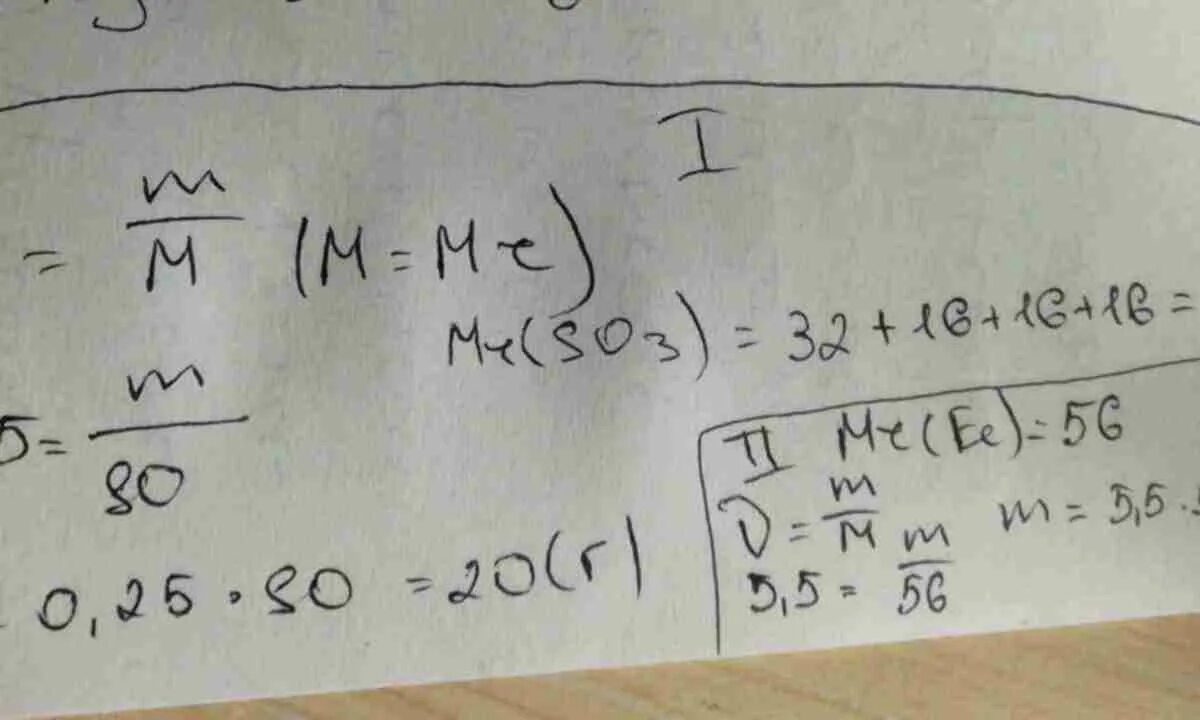 I
= m/M (M = Mr)
Mr(SO3) = 32 + 16 + 16 + 16 =
5 = m/80
0,25 · 80 = 20 (г)
II Mr(Fe) = 56
ν = m/M
m = 5,5 ·
5,5 = m/56